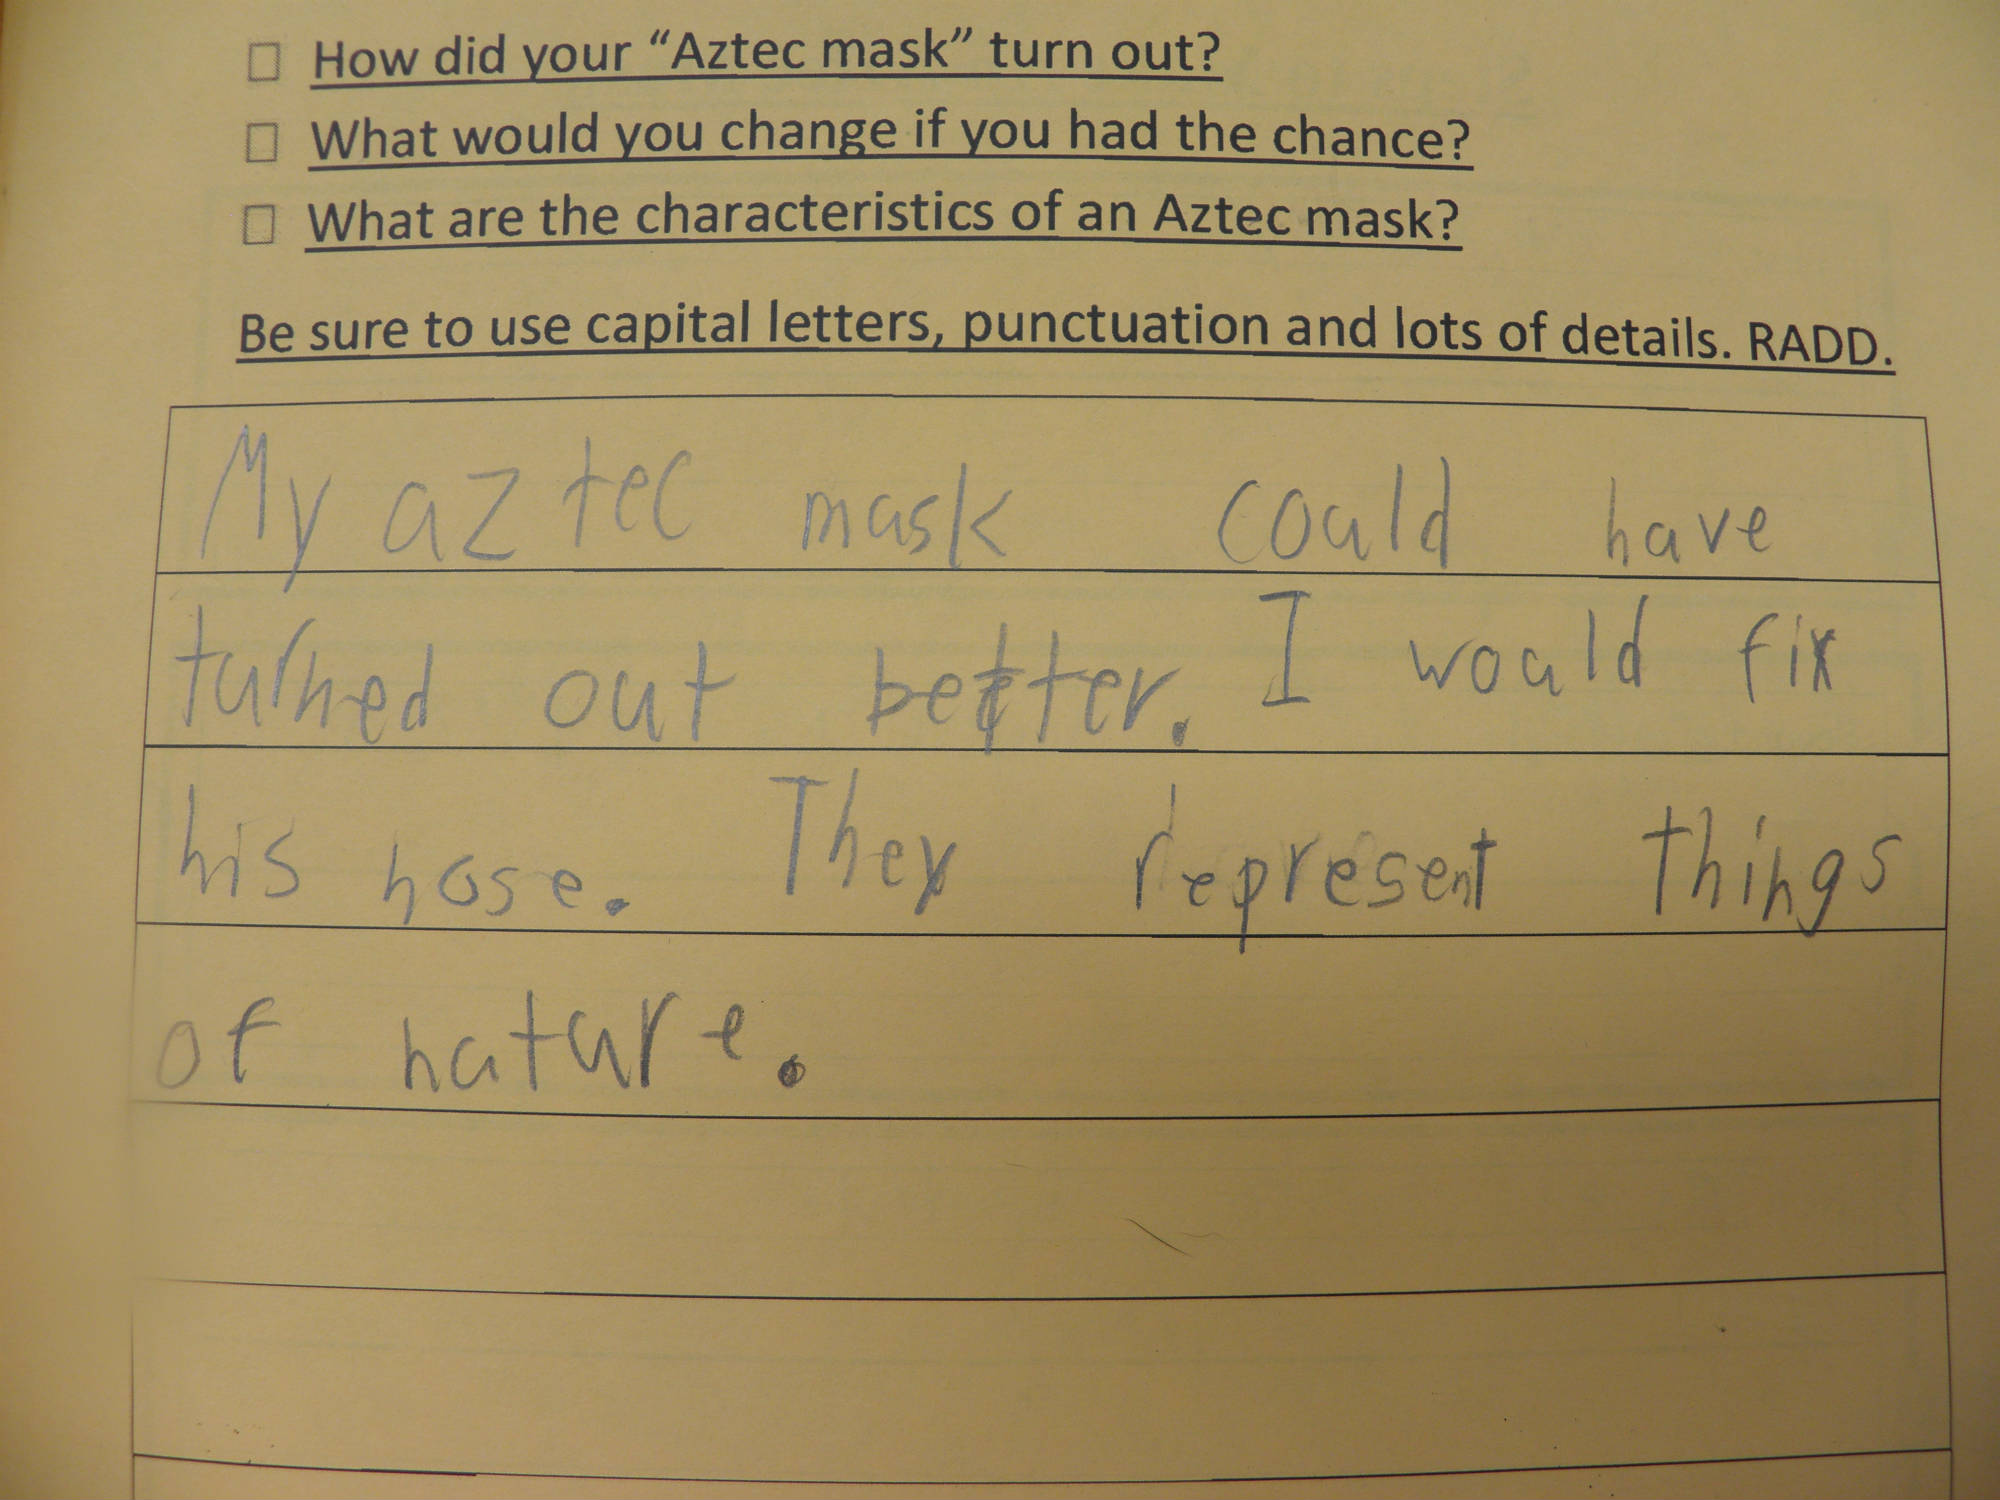 ☐ How did your “Aztec mask” turn out?
☐ What would you change if you had the chance?
☐ What are the characteristics of an Aztec mask?
Be sure to use capital letters, punctuation and lots of details. RADD.
My aztec mask could have
turned out better. I would fix
his nose. They represent things
of nature.